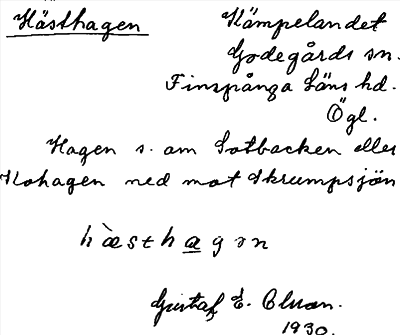 Hästhagen
Kämpelandet
Godegårds sn.
Finspånga Läns hd.
Ögl.
Hagen s. om Sotbacken eller
Kohagen ned mot Skrumpsjön
hæ̀sthagɘn
Gustaf E. Clusn.
1930.